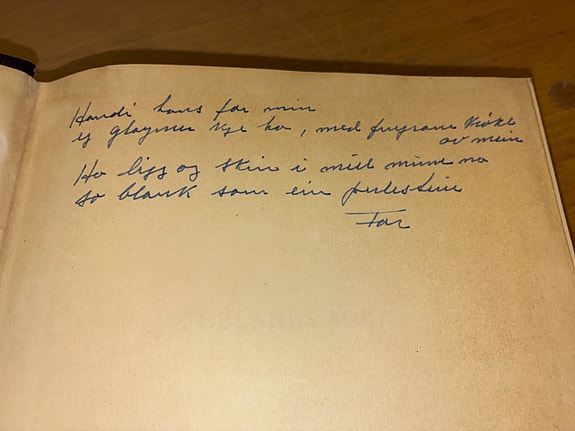 Handi hans far min
eg gløymer kje ho, med fingrane
av mein
Ho ligg og skin i mitt minne no
so blank som ein perlestein
Far